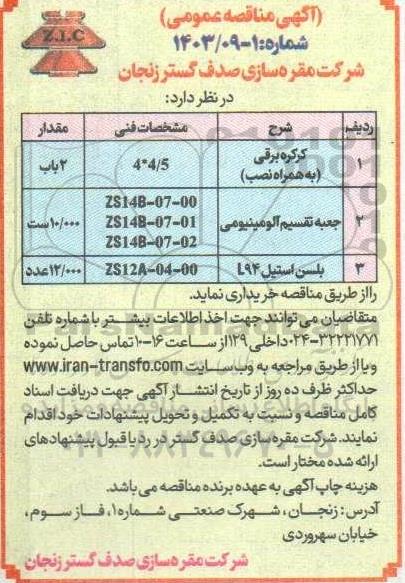 (آگهی مناقصه عمومی)
Z.I.C
شماره: ۱-۱۴۰۳/۰۹
شرکت مقره سازی صدف گستر زنجان
در نظر دارد:
ردیف شرح مشخصات فنی مقدار
۱ کرکره برقی (به همراه نصب) 4*4/5 ۲ باب
۲ جعبه تقسیم آلومینیومی ZS14B-07-00 ۱۰/۰۰۰ ست
ZS14B-07-01
ZS14B-07-02
۳ بلسن استیل L۹۴ ZS12A-04-00 ۱۲/۰۰۰ عدد
را از طریق مناقصه خریداری نماید.
متقاضیان می توانند جهت اخذ اطلاعات بیشتر با شماره تلفن
۰۲۴-۳۲۲۲۱۷۷۱ داخلی ۱۲۹ از ساعت ۱۶-۱۰ تماس حاصل نموده
و یا از طریق مراجعه به وب سایت www.iran-transfo.com
حداکثر ظرف ده روز از تاریخ انتشار آگهی جهت دریافت اسناد
کامل مناقصه و نسبت به تکمیل و تحویل پیشنهادات خود اقدام
نمایند. شرکت مقره سازی صدف گستر در رد یا قبول پیشنهادهای
ارائه شده مختار است.
هزینه چاپ آگهی به عهده برنده مناقصه می باشد.
آدرس: زنجان، شهرک صنعتی شماره ۱، فاز سوم،
خیابان سهروردی
شرکت مقره سازی صدف گستر زنجان